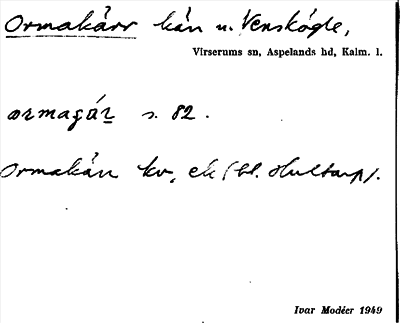 Ormakärr kärr u. Venskögle,
Virserums sn, Aspelands hd, Kalm. l.
ormagár s. 82.
Ormakärr kv, ek (bl. Hultarp).
Ivar Modéer 1949